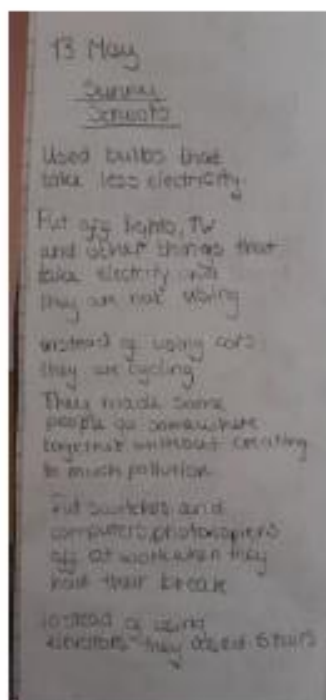 13 May
Used bulbs that
take less electricity
Put off lights, TV
and other things that
take electrity
they are not using
instead of using cars
they are cycling
They made some
people go somewhere
together without creating
to much pollution
Put switches and
computers, photocopiers
off at work when they
have their break
instead of using
elevators they stairs